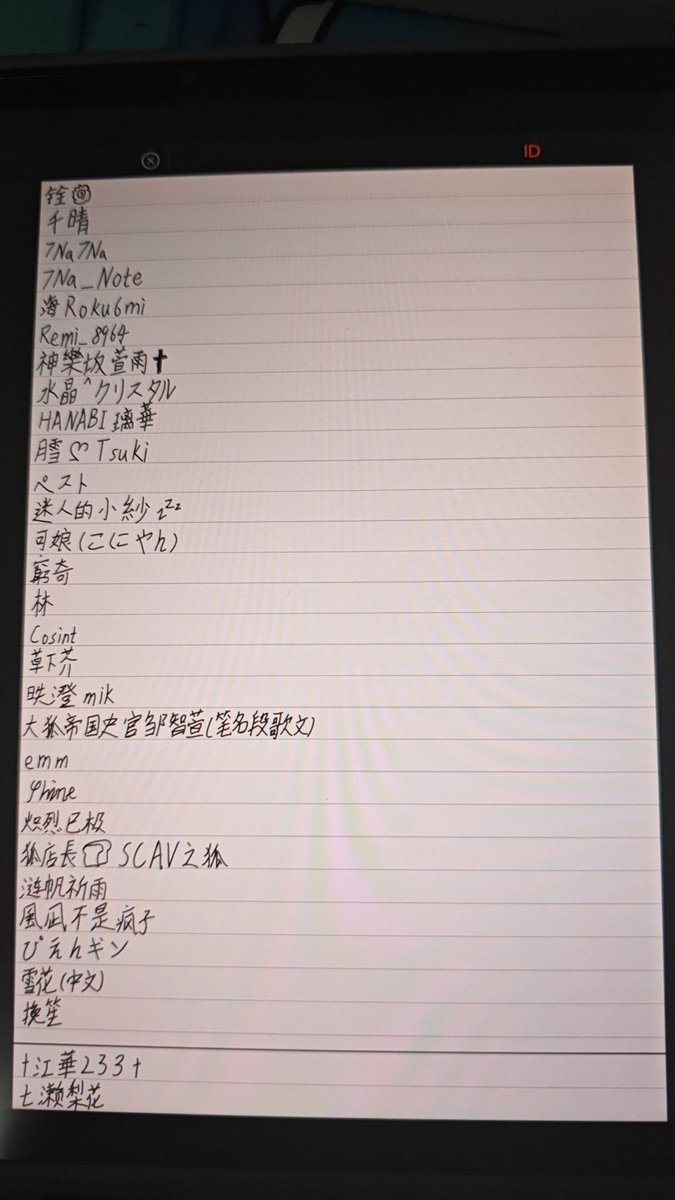 ID
铨
千晴
7Na7Na
7Na_Note
海Roku6mi
Remi_8964
神樂坂萱雨✝
水晶^クリスタル
HANABI璃華
月雪♡Tsuki
ペスト
迷人的小紗zzz
可娘(こにやん)
窮奇
林
Cosint
草下芥
昳澄mik
大狐帝国史官邹智萱(笔名段歌文)
emm
炽烈已极
狐店長 SCAV之狐
涟帆祈雨
風凪不是疯子
ぴえんギン
雪花(中文)
換笙
†江華233†
七濑梨花